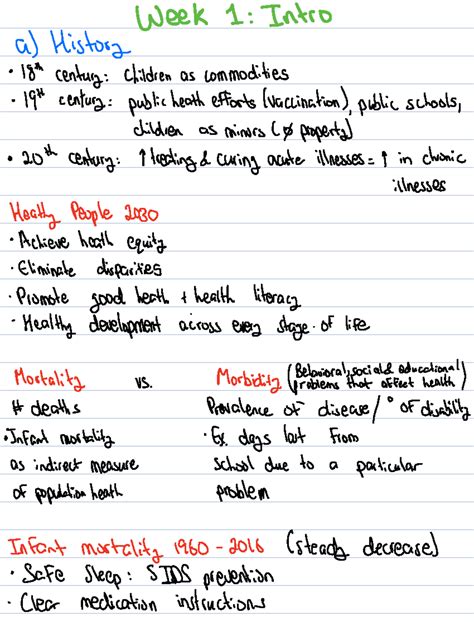 Week 1: Intro
a) History
• 18th century: children as commodities
• 19th century: public heath efforts (vaccination), public schools,
children as minors (∅ property)
• 20th century: ↑ treating & curing acute illnesses = ↑ in chronic
illnesses
Healthy People 2030
• Achieve health equity
• Eliminate disparities
• Promote good health + health literacy
• Healthy development across every stage of life
Mortality vs. Morbidity (Behavioral, social & educational
problems that affect health)
# deaths Prevalence of disease/° of disability
• Infant mortality • Ex. days lost from
as indirect measure school due to a particular
of population heath problem
Infant mortality 1960 - 2016 (steady decrease)
• Safe sleep: SIDS prevention
• Clear medication instructions